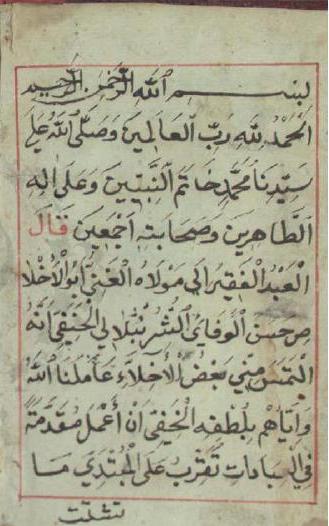 بسم الله الرحمن الرحيم
الحمد لله رب العالمين وصلى الله على
سيدنا محمد خاتم النبيين وعلى اله
الطاهرين وصحابته اجمعين قال
العبد الفقير الى مولاه الغني ابو الاخلا
ص حسن الوفائي الشرنبلالي الحنفي انه
التمس مني بعض الاخلاء عاملنا الله
واياهم بلطفه الخفي ان أعمل مقدمة
في العبادات تقرب على المبتدي ما
تشتت